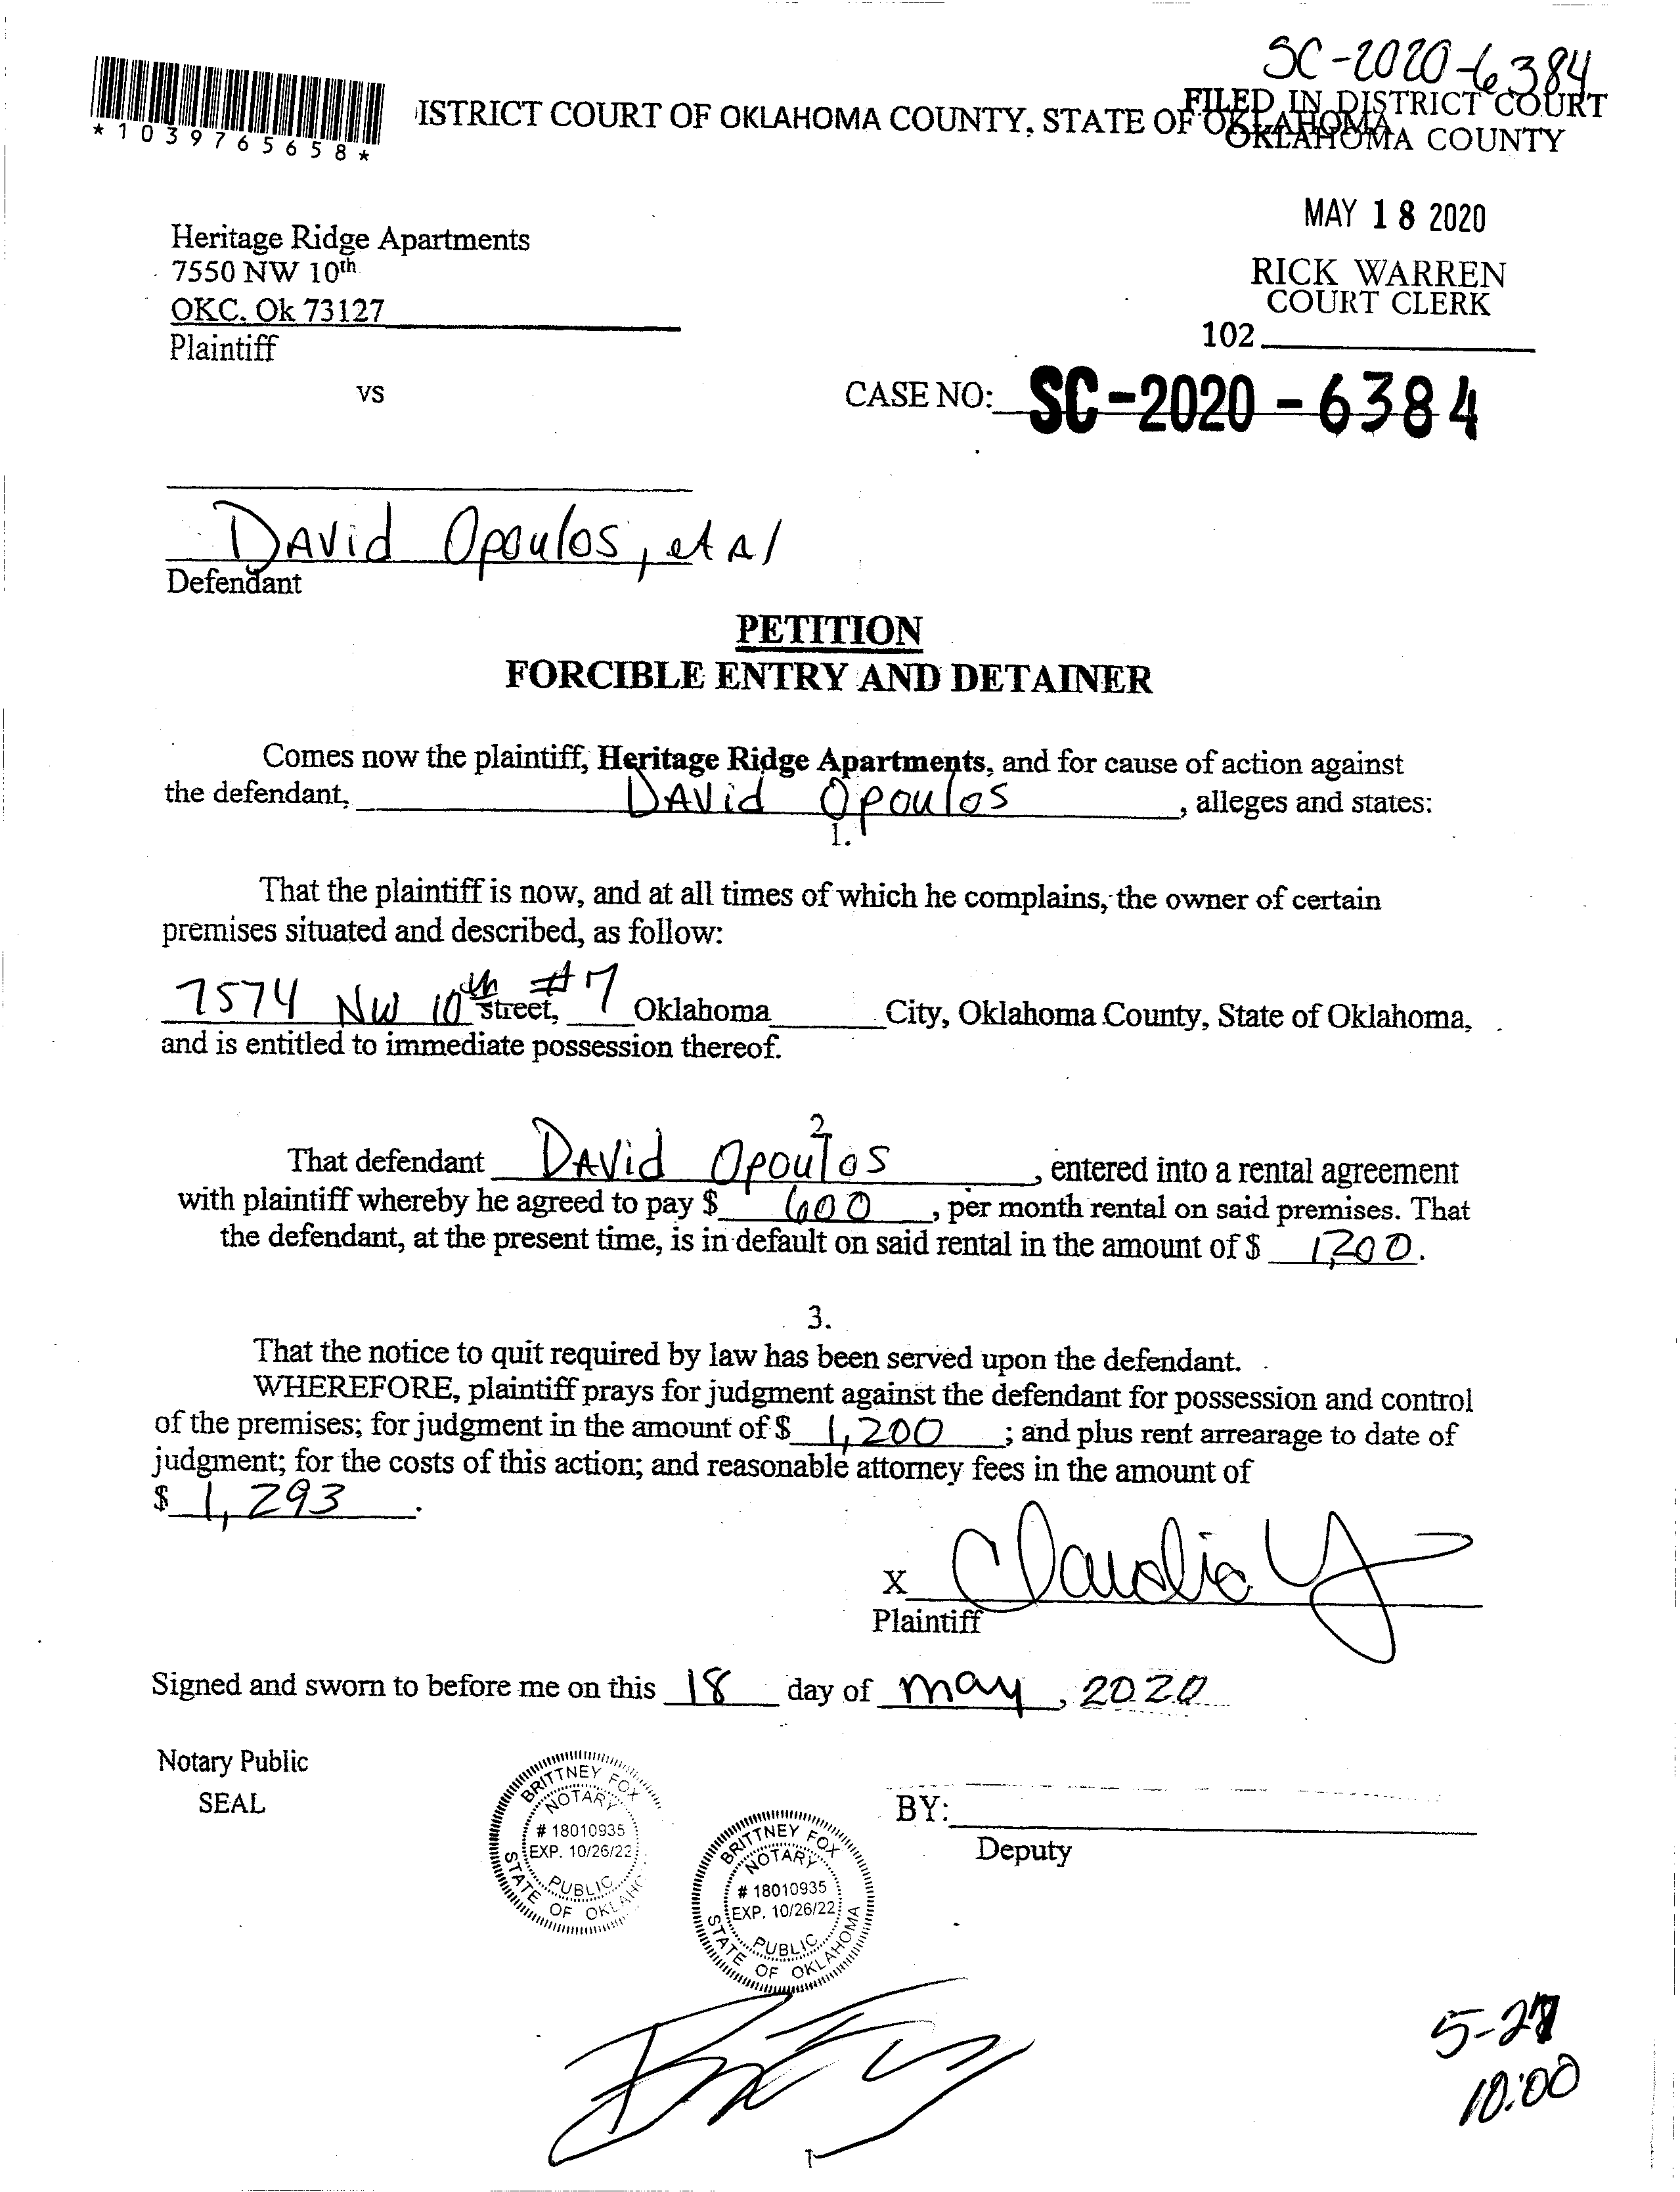 SC-2020-6384
*1039765658*
ISTRICT COURT OF OKLAHOMA COUNTY, STATE OF OKLAHOMA
FILED IN DISTRICT COURT
OKLAHOMA COUNTY
MAY 18 2020
RICK WARREN
COURT CLERK
102
Heritage Ridge Apartments
7550 NW 10th
OKC, Ok 73127
Plaintiff
vs
CASE NO: SC-2020-6384
David Opoulos, et al
Defendant
PETITION
FORCIBLE ENTRY AND DETAINER
Comes now the plaintiff, Heritage Ridge Apartments, and for cause of action against
the defendant, David Opoulos, alleges and states:
1.
That the plaintiff is now, and at all times of which he complains, the owner of certain
premises situated and described, as follow:
7574 NW 10th street, #7 Oklahoma City, Oklahoma County, State of Oklahoma,
and is entitled to immediate possession thereof.
2
That defendant David Opoulos, entered into a rental agreement
with plaintiff whereby he agreed to pay $ 600, per month rental on said premises. That
the defendant, at the present time, is in default on said rental in the amount of $ 1,200.
3.
That the notice to quit required by law has been served upon the defendant.
WHEREFORE, plaintiff prays for judgment against the defendant for possession and control
of the premises; for judgment in the amount of $ 1,200; and plus rent arrearage to date of
judgment; for the costs of this action; and reasonable attorney fees in the amount of
$ 1,293.
X Claudia Y
Plaintiff
Signed and sworn to before me on this 18 day of may, 2020
Notary Public
SEAL
BRITTNEY FOX
NOTARY
# 18010935
EXP. 10/26/22
PUBLIC
STATE OF OKLAHO
BRITTNEY FOX
NOTARY
# 18010935
EXP. 10/26/22
PUBLIC
STATE OF OKLAHOMA
BY:
Deputy
10:00